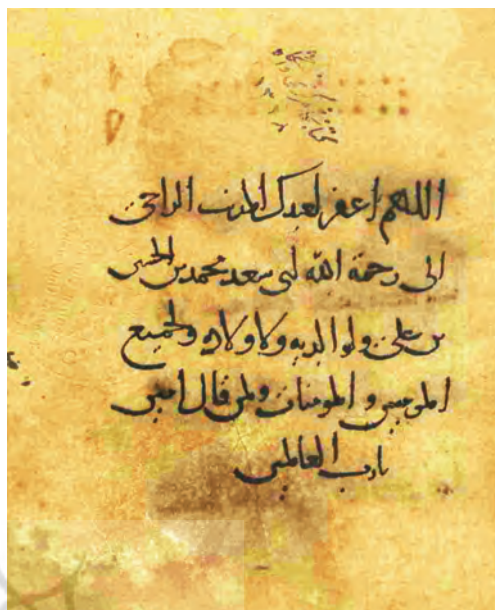 اللهم اغفر لعبدك المذنب الراجي
الى رحمة الله ابى سعد محمد بن الحسين
بن على ولوالديه ولاولاده ولجميع
المومنين والمومنات ولمن قال امين
يارب العالمين